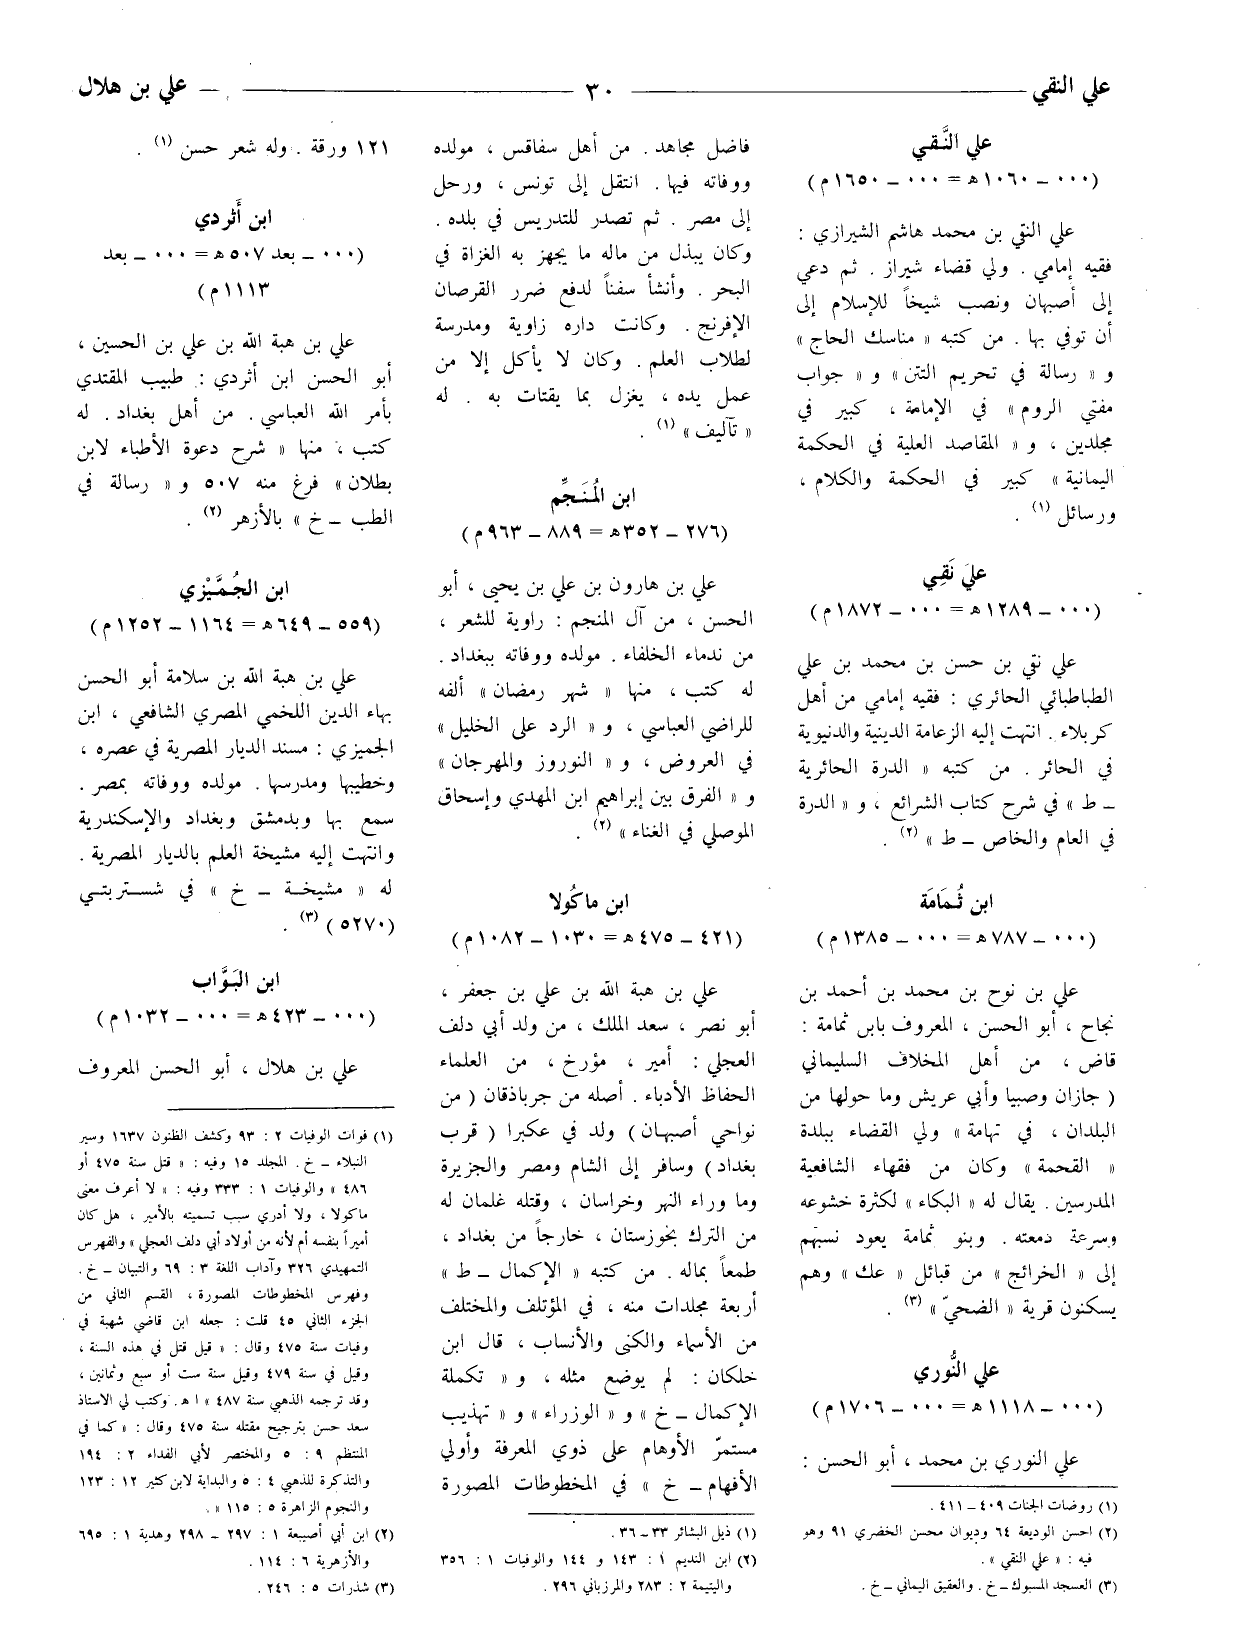 علي النقي
٣٠
علي بن هلال
علي النَّقي
(٠٠٠ ــ ١٠٦٠ هـ = ٠٠٠ ــ ١٦٥٠ م)
علي النقي بن محمد هاشم الشيرازي :
فقيه إمامي . ولي قضاء شيراز . ثم دعي
إلى أصبهان ونصب شيخاً للإسلام إلى
أن توفي بها . من كتبه « مناسك الحاج »
و « رسالة في تحريم التتن » و « جواب
مفتي الروم » في الإمامة ، كبير في
مجلدين ، و « المقاصد العلية في الحكمة
اليمانية » كبير في الحكمة والكلام ،
ورسائل (١) .
علي نَقِي
(٠٠٠ ــ ١٢٨٩ هـ = ٠٠٠ ــ ١٨٧٢ م)
علي نقي بن حسن بن محمد بن علي
الطباطبائي الحائري : فقيه إمامي من أهل
كربلاء . انتهت إليه الزعامة الدينية والدنيوية
في الحائر . من كتبه « الدرة الحائرية
ــ ط » في شرح كتاب الشرائع ، و « الدرة
في العام والخاص ــ ط » (٢) .
ابن ثُمَامَة
(٠٠٠ ــ ٧٨٧ هـ = ٠٠٠ ــ ١٣٨٥ م)
علي بن نوح بن محمد بن أحمد بن
نجاح ، أبو الحسن ، المعروف بابن ثمامة :
قاض ، من أهل المخلاف السليماني
( جازان وصبيا وأبي عريش وما حولها من
البلدان ، في تهامة » ولي القضاء ببلدة
« القحمة » وكان من فقهاء الشافعية
المدرسين . يقال له « البكاء » لكثرة خشوعه
وسرعة دمعته . وبنو ثمامة يعود نسبهم
إلى « الخرائج » من قبائل « عك » وهم
يسكنون قرية « الضحيّ » (٣) .
علي النُّوري
(٠٠٠ ــ ١١١٨ هـ = ٠٠٠ ــ ١٧٠٦ م)
علي النوري بن محمد ، أبو الحسن :
(١) روضات الجنات ٤٠٩ ــ ٤١١ .
(٢) احسن الوديعة ٦٤ وديوان محسن الخضري ٩١ وهو
فيه : « علي النقي » .
(٣) العسجد المسبوك ــ خ . والعقيق اليماني ــ خ .
فاضل مجاهد . من أهل سفاقس ، مولده
ووفاته فيها . انتقل إلى تونس ، ورحل
إلى مصر . ثم تصدر للتدريس في بلده .
وكان يبذل من ماله ما يجهز به الغزاة في
البحر . وأنشأ سفناً لدفع ضرر القرصان
الإفرنج . وكانت داره زاوية ومدرسة
لطلاب العلم . وكان لا يأكل إلا من
عمل يده ، يغزل بما يقتات به . له
« تآليف » (١) .
ابن المُنَجِّم
(٢٧٦ ــ ٣٥٢ هـ = ٨٨٩ ــ ٩٦٣ م)
علي بن هارون بن علي بن يحيى ، أبو
الحسن ، من آل المنجم : راوية للشعر ،
من ندماء الخلفاء . مولده ووفاته ببغداد .
له كتب ، منها « شهر رمضان » ألفه
للراضي العباسي ، و « الرد على الخليل »
في العروض ، و « النوروز والمهرجان »
و « الفرق بين إبراهيم ابن المهدي وإسحاق
الموصلي في الغناء » (٢) .
ابن ماكُولا
(٤٢١ ــ ٤٧٥ هـ = ١٠٣٠ ــ ١٠٨٢ م)
علي بن هبة الله بن علي بن جعفر ،
أبو نصر ، سعد الملك ، من ولد أبي دلف
العجلي : أمير ، مؤرخ ، من العلماء
الحفاظ الأدباء . أصله من جرباذقان ( من
نواحي أصبهان ) ولد في عكبرا ( قرب
بغداد ) وسافر إلى الشام ومصر والجزيرة
وما وراء النهر وخراسان ، وقتله غلمان له
من الترك بخوزستان ، خارجاً من بغداد ،
طمعاً بماله . من كتبه « الإكمال ــ ط »
أربعة مجلدات منه ، في المؤتلف والمختلف
من الأسماء والكنى والأنساب ، قال ابن
خلكان : لم يوضع مثله ، و « تكملة
الإكمال ــ خ » و « الوزراء » و « تهذيب
مستمرّ الأوهام على ذوي المعرفة وأولي
الأفهام ــ خ » في المخطوطات المصورة
(١) ذيل البشائر ٣٣ ــ ٣٦ .
(٢) ابن النديم ١ : ١٤٣ و ١٤٤ والوفيات ١ : ٣٥٦
واليتيمة ٢ : ٢٨٣ والمرزباني ٢٩٦ .
١٢١ ورقة . وله شعر حسن (١) .
ابن أَثردي
(٠٠٠ ــ بعد ٥٠٧ هـ = ٠٠٠ ــ بعد
١١١٣ م)
علي بن هبة الله بن علي بن الحسين ،
أبو الحسن ابن أثردي : طبيب المقتدي
بأمر الله العباسي . من أهل بغداد . له
كتب ، منها « شرح دعوة الأطباء لابن
بطلان » فرغ منه ٥٠٧ و « رسالة في
الطب ــ خ » بالأزهر (٢) .
ابن الجُمَّيْزي
(٥٥٩ ــ ٦٤٩ هـ = ١١٦٤ ــ ١٢٥٢ م)
علي بن هبة الله بن سلامة أبو الحسن
بهاء الدين اللخمي المصري الشافعي ، ابن
الجميزي : مسند الديار المصرية في عصره ،
وخطيبها ومدرسها . مولده ووفاته بمصر .
سمع بها وبدمشق وبغداد والإسكندرية
وانتهت إليه مشيخة العلم بالديار المصرية .
له « مشيخة ــ خ » في شستربتي
(٥٢٧٠) (٣) .
ابن البَوَّاب
(٠٠٠ ــ ٤٢٣ هـ = ٠٠٠ ــ ١٠٣٢ م)
علي بن هلال ، أبو الحسن المعروف
(١) فوات الوفيات ٢ : ٩٣ وكشف الظنون ١٦٣٧ وسير
النبلاء ــ خ . المجلد ١٥ وفيه : « قتل سنة ٤٧٥ أو
٤٨٦ » والوفيات ١ : ٣٣٣ وفيه : « لا أعرف معنى
ماكولا ، ولا أدري سبب تسميته بالأمير ، هل كان
أميراً بنفسه أم لأنه من أولاد أبي دلف العجلي » والفهرس
التمهيدي ٣٢٦ وآداب اللغة ٣ : ٦٩ والتبيان ــ خ .
وفهرس المخطوطات المصورة ، القسم الثاني من
الجزء الثاني ٤٥ قلت : جعله ابن قاضي شهبة في
وفيات سنة ٤٧٥ وقال : « قيل قتل في هذه السنة ،
وقيل في سنة ٤٧٩ وقيل سنة ست أو سبع وثمانين ،
وقد ترجمه الذهبي سنة ٤٨٧ » ا هـ . وكتب لي الاستاذ
سعد حسن بترجيح مقتله سنة ٤٧٥ وقال : « كما في
المنتظم ٩ : ٥ والمختصر لأبي الفداء ٢ : ١٩٤
والتذكرة للذهبي ٤ : ٥ والبداية لابن كثير ١٢ : ١٢٣
والنجوم الزاهرة ٥ : ١١٥ » .
(٢) ابن أبي أصيبعة ١ : ٢٩٧ ــ ٢٩٨ وهدية ١ : ٦٩٥
والأزهرية ٦ : ١١٤ .
(٣) شذرات ٥ : ٢٤٦ .